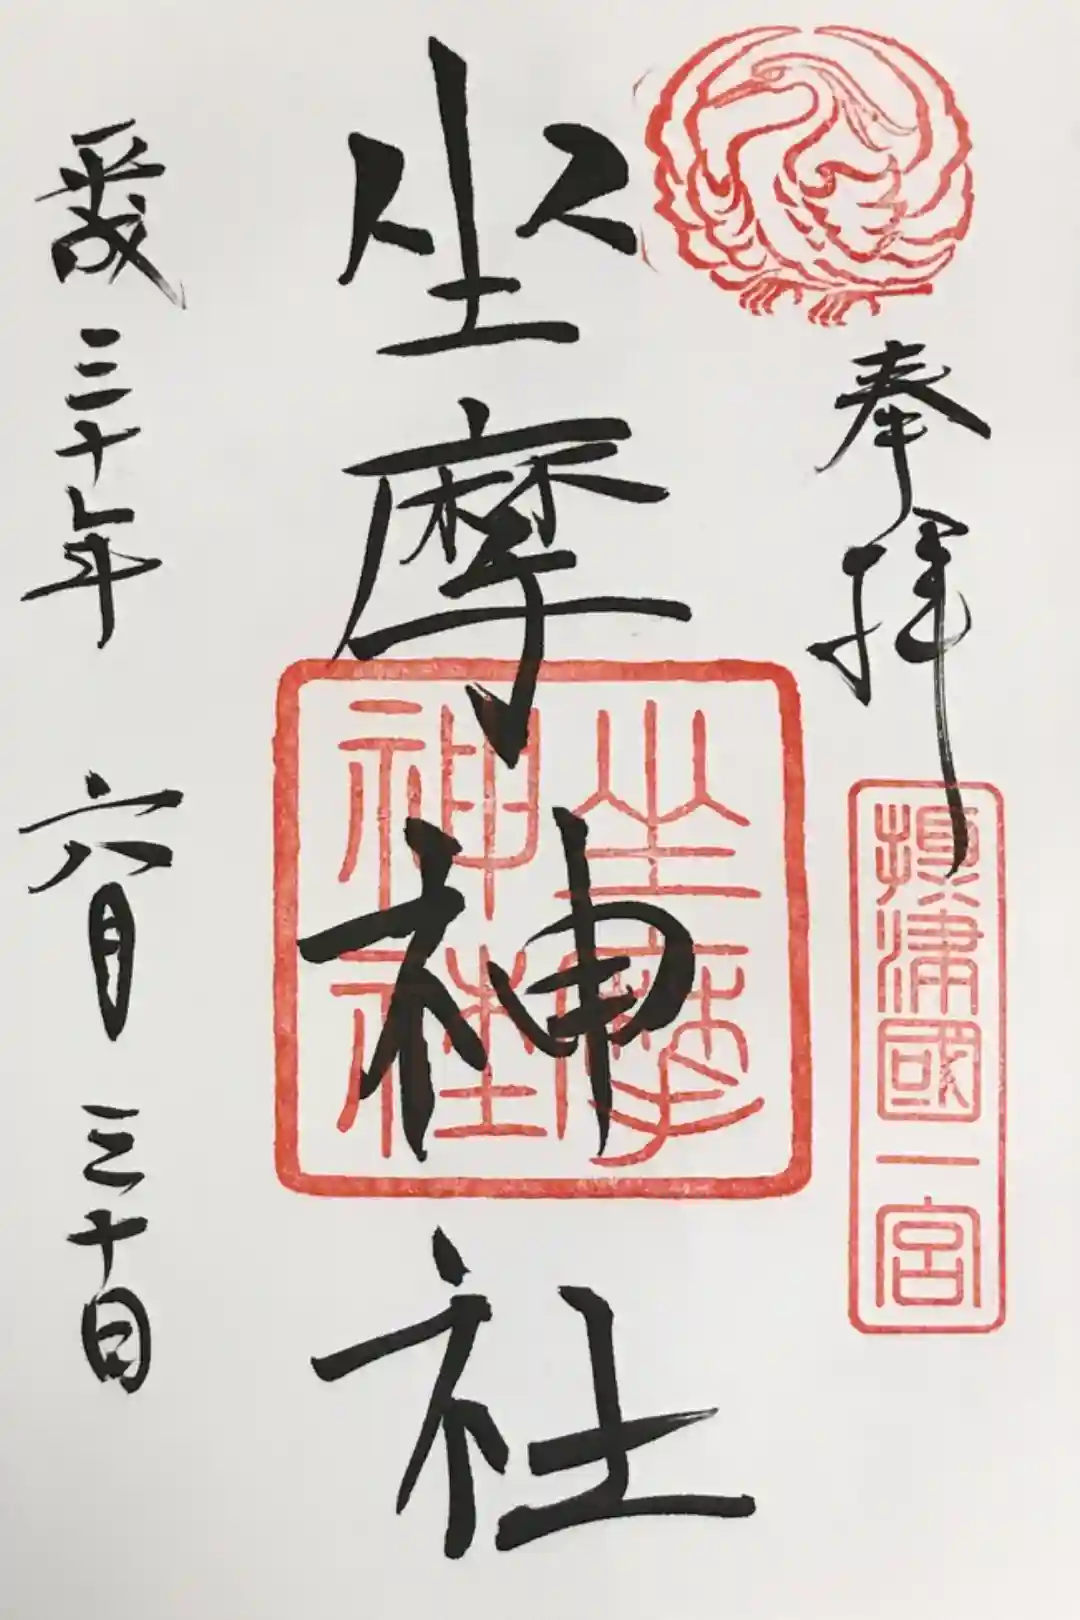 奉拝
攝津國一宮
坐摩神社
坐摩
神社
平成三十年 六月三十日